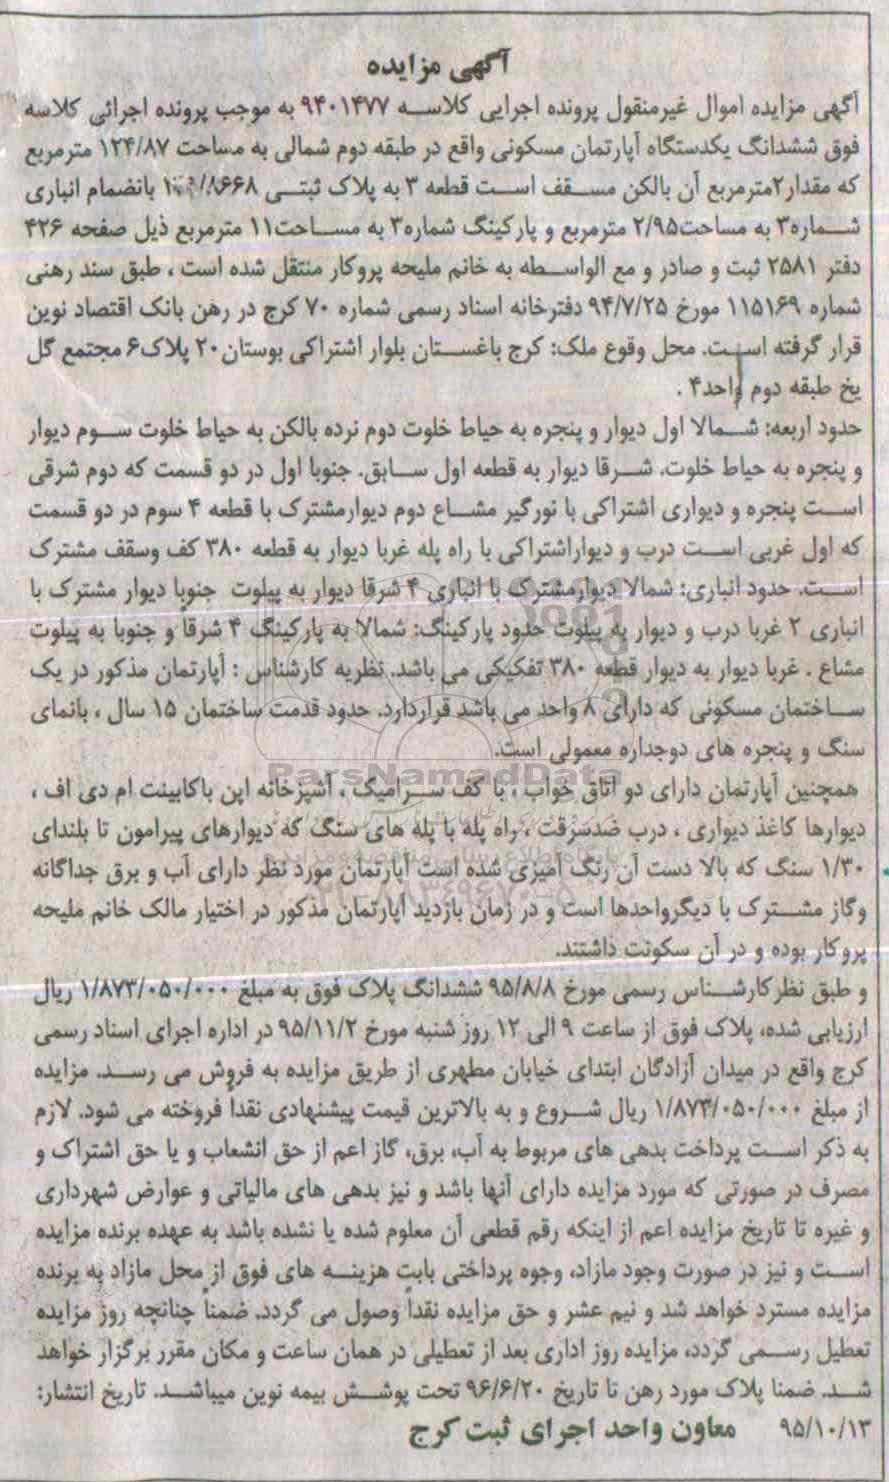 آگهی مزایده
آگهی مزایده اموال غیرمنقول پرونده اجرایی کلاسه ۹۴۰۱۴۷۷ به موجب پرونده اجرائی کلاسه
فوق ششدانگ یکدستگاه آپارتمان مسکونی واقع در طبقه دوم شمالی به مساحت ۱۲۴/۸۷ مترمربع
که مقدار۲مترمربع آن بالکن مسقف است قطعه ۳ به پلاک ثبتی /۸۶۶۸ بانضمام انباری
شماره۳ به مساحت۲/۹۵ مترمربع و پارکینگ شماره۳ به مساحت۱۱ مترمربع ذیل صفحه ۴۲۶
دفتر ۲۵۸۱ ثبت و صادر و مع الواسطه به خانم ملیحه پروکار منتقل شده است ، طبق سند رهنی
شماره ۱۱۵۱۶۹ مورخ ۹۴/۷/۲۵ دفترخانه اسناد رسمی شماره ۷۰ کرج در رهن بانک اقتصاد نوین
قرار گرفته است. محل وقوع ملک: کرج باغستان بلوار اشتراکی بوستان۲۰ پلاک۶ مجتمع گل
یخ طبقه دوم واحد۴ .
حدود اربعه: شمالا اول دیوار و پنجره به حیاط خلوت دوم نرده بالکن به حیاط خلوت سوم دیوار
و پنجره به حیاط خلوت. شرقا دیوار به قطعه اول سابق. جنوبا اول در دو قسمت که دوم شرقی
است پنجره و دیواری اشتراکی با نورگیر مشاع دوم دیوارمشترک با قطعه ۴ سوم در دو قسمت
که اول غربی است درب و دیواراشتراکی با راه پله غربا دیوار به قطعه ۳۸۰ کف وسقف مشترک
است. حدود انباری: شمالا دیوارمشترک با انباری ۴ شرقا دیوار به پیلوت جنوبا دیوار مشترک با
انباری ۲ غربا درب و دیوار به پیلوت حدود پارکینگ: شمالا به پارکینگ ۴ شرقاً و جنوبا به پیلوت
مشاع . غربا دیوار به دیوار قطعه ۳۸۰ تفکیکی می باشد. نظریه کارشناس : آپارتمان مذکور در یک
ساختمان مسکونی که دارای ۸ واحد می باشد قراردارد. حدود قدمت ساختمان ۱۵ سال ، بانمای
سنگ و پنجره های دوجداره معمولی است.
همچنین آپارتمان دارای دو اتاق خواب ، با کف سرامیک ، آشپزخانه اپن باکابینت ام دی اف ،
دیوارها کاغذ دیواری ، درب ضدسرقت ، راه پله با پله های سنگ که دیوارهای پیرامون تا بلندای
۱/۳۰ سنگ که بالا دست آن رنگ آمیزی شده است آپارتمان مورد نظر دارای آب و برق جداگانه
وگاز مشترک با دیگرواحدها است و در زمان بازدید آپارتمان مذکور در اختیار مالک خانم ملیحه
پروکار بوده و در آن سکونت داشتند.
و طبق نظرکارشناس رسمی مورخ ۹۵/۸/۸ ششدانگ پلاک فوق به مبلغ ۱/۸۷۳/۰۵۰/۰۰۰ ریال
ارزیابی شده، پلاک فوق از ساعت ۹ الی ۱۲ روز شنبه مورخ ۹۵/۱۱/۲ در اداره اجرای اسناد رسمی
کرج واقع در میدان آزادگان ابتدای خیابان مطهری از طریق مزایده به فروش می رسد. مزایده
از مبلغ ۱/۸۷۳/۰۵۰/۰۰۰ ریال شروع و به بالاترین قیمت پیشنهادی نقداً فروخته می شود. لازم
به ذکر است پرداخت بدهی های مربوط به آب، برق، گاز اعم از حق انشعاب و یا حق اشتراک و
مصرف در صورتی که مورد مزایده دارای آنها باشد و نیز بدهی های مالیاتی و عوارض شهرداری
و غیره تا تاریخ مزایده اعم از اینکه رقم قطعی آن معلوم شده یا نشده باشد به عهده برنده مزایده
است و نیز در صورت وجود مازاد، وجوه پرداختی بابت هزینه های فوق از محل مازاد به برنده
مزایده مسترد خواهد شد و نیم عشر و حق مزایده نقداً وصول می گردد. ضمناً چنانچه روز مزایده
تعطیل رسمی گردد، مزایده روز اداری بعد از تعطیلی در همان ساعت و مکان مقرر برگزار خواهد
شد. ضمنا پلاک مورد رهن تا تاریخ ۹۶/۶/۲۰ تحت پوشش بیمه نوین میباشد. تاریخ انتشار:
۹۵/۱۰/۱۳ معاون واحد اجرای ثبت کرج
ParsNamadData